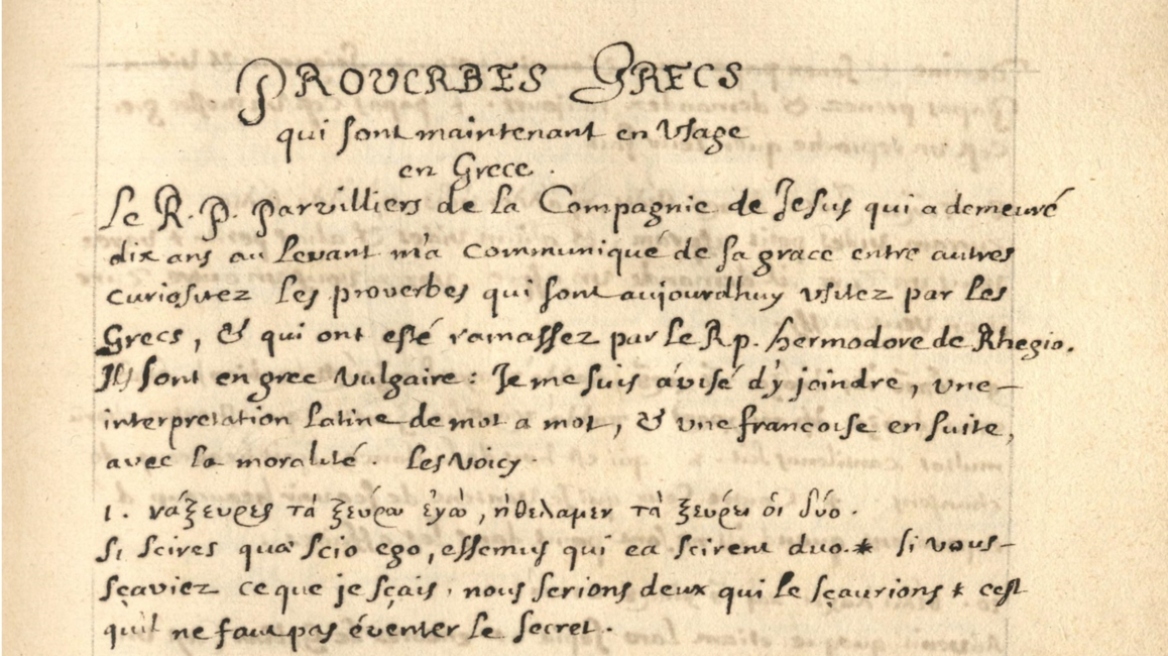 PROUERBES GRECS
qui sont maintenant en Vsage
en Grece.
Le R. P. Parvilliers de la Compagnie de Jesus qui a demeuré
dix ans au Levant m'a communiqué de sa grace entre autres
curiositez les proverbes qui sont aujourdhuy vsitez par les
Grecs, & qui ont esté ramassez par le R p. hermodore de Rhegio.
Ils sont en grec vulgaire: Je me suis avisé d'y joindre, vne
interpretation latine de mot a mot, & vne francoise en suite,
avec la moralité. Les Voicy.
1. νάξευρες τὰ ξεύρω ἐγὼ, ἠθελαμεν τὰ ξεύρει ὁι δύο.
Si scires quæ scio ego, essemus qui ea scirent duo.* si vous-
sçaviez ce que je sçais, nous serions deux qui le sçaurions * cest
quil ne faut pas éventer le secret.